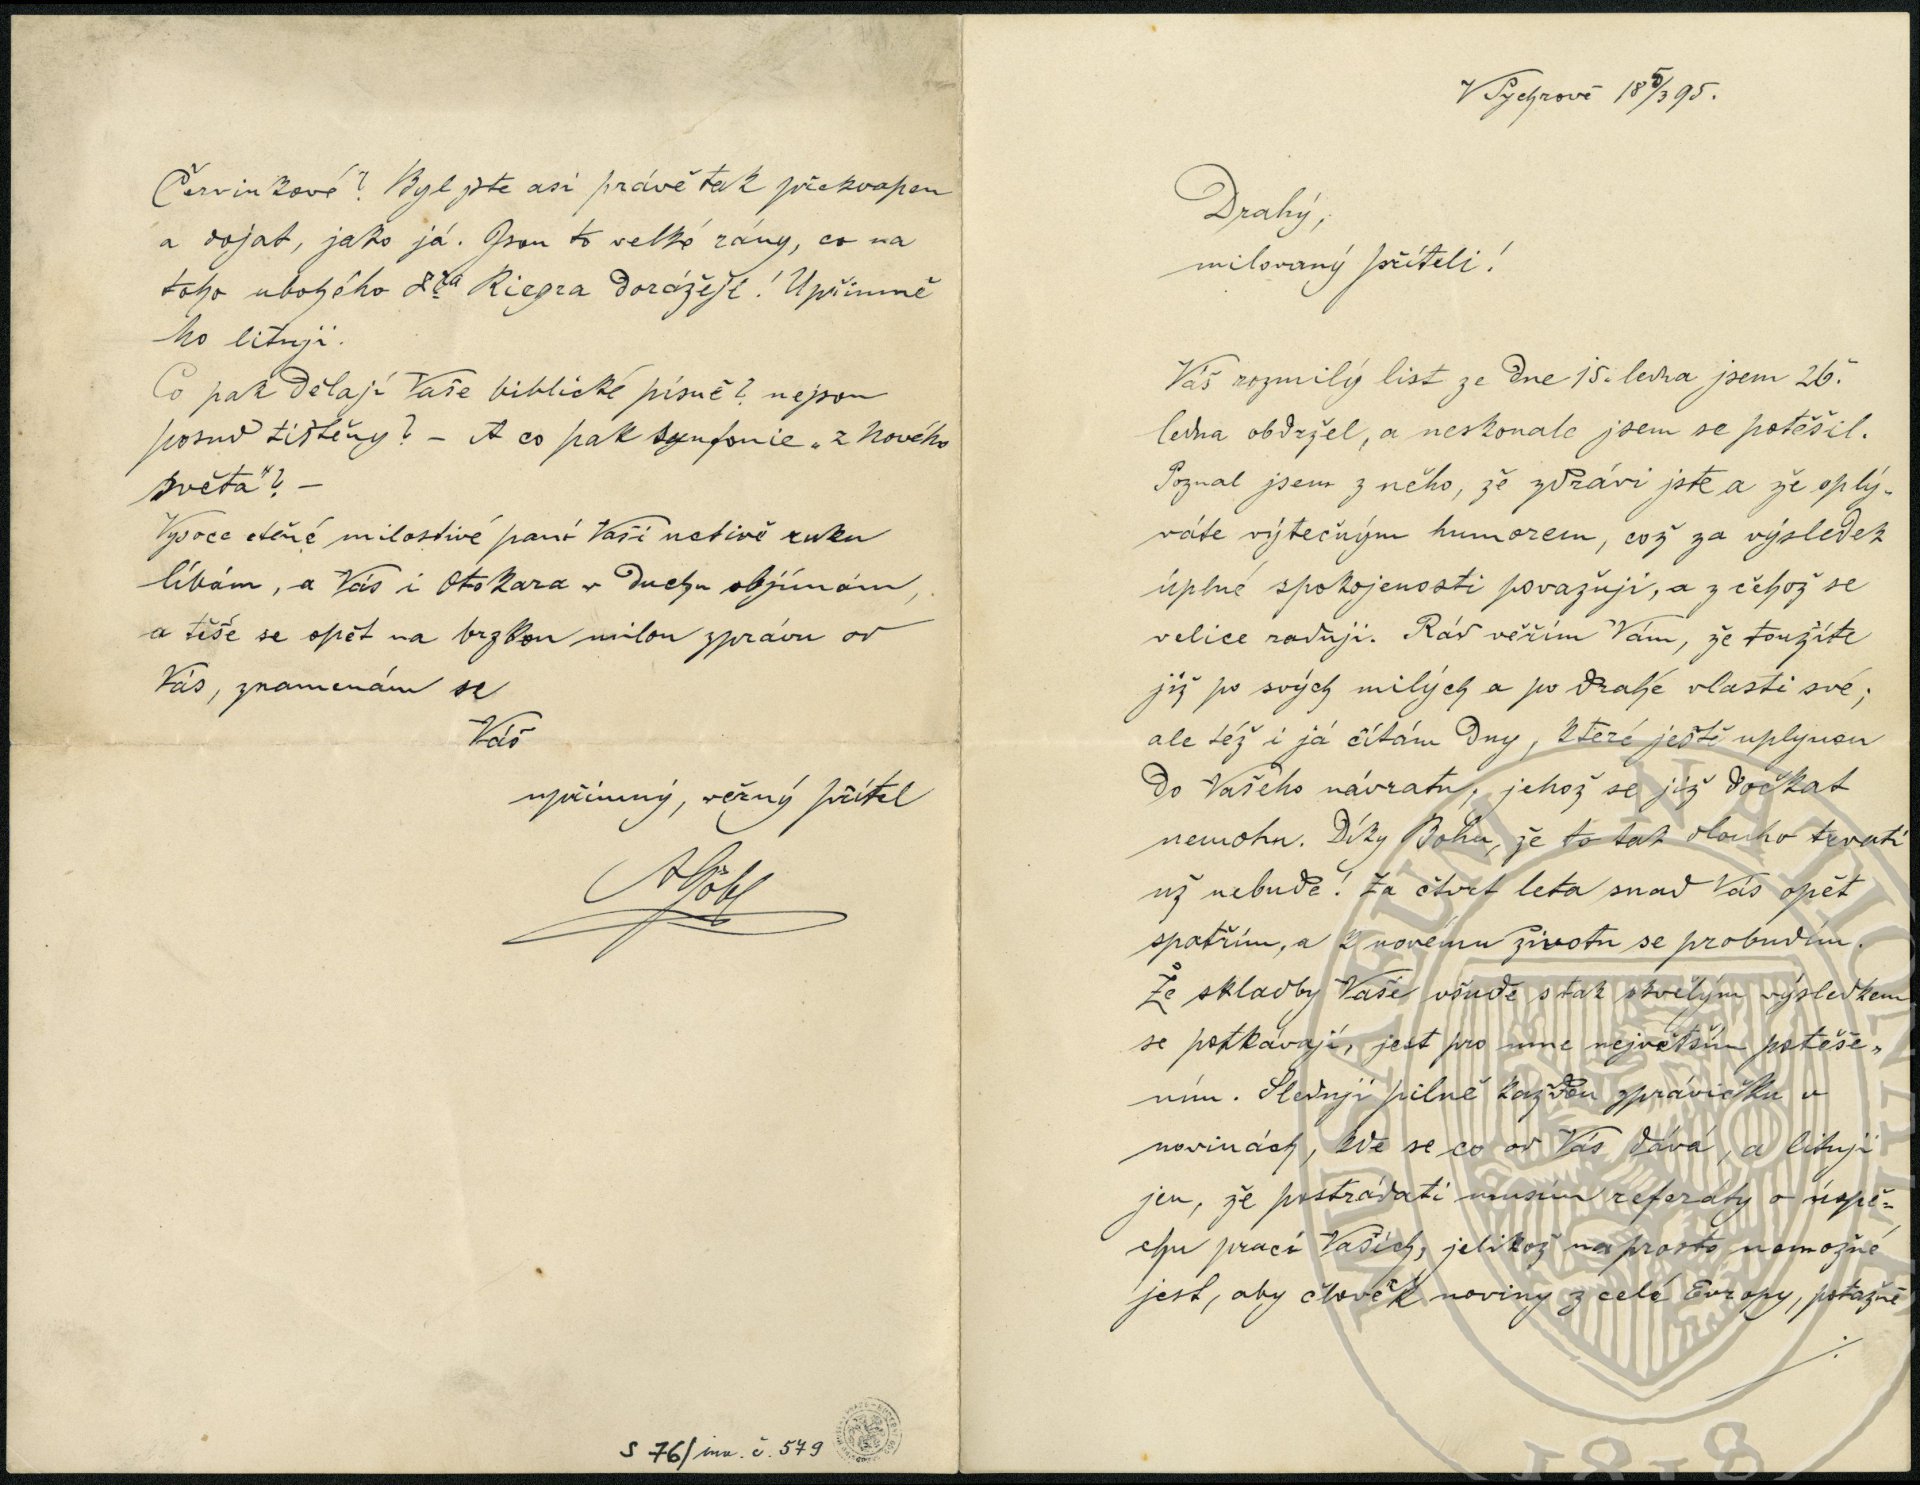 V Sychrově 18 5/3 95.
Drahý,
milovaný příteli!
Váš rozmilý list ze dne 15. ledna jsem 26.
ledna obdržel, a neskonale jsem se potěšil.
Poznal jsem z něho, že zdrávi jste a že oplý-
váte výtečným humorem, což za výsledek
úplné spokojenosti považuji, a z čehož se
velice raduji. Rád věřím Vám, že toužíte
již po svých milých a po drahé vlasti své;
ale též i já čítám dny, které ještě uplynou
do Vašeho návratu, jehož se již dočkat
nemohu. Díky Bohu, že to tak dlouho trvati
už nebude! Za čtvrt leta snad Vás opět
spatřím, a k novému životu se probudím.
Že skladby Vaše všude s tak skvělým výsledkem
se potkávají, jest pro mne největším potěše-
ním. Sleduji pilně každou zprávičku v
novinách, kde se co od Vás dává, a lituji
jen, že postrádati musím referáty o úspě-
chu prací Vašich, jelikož naprosto nemožné
jest, aby člověk noviny z celé Evropy, potažně
./.
Červinkové? Byl jste asi právě tak překvapen
a dojat, jako já. Jsou to velké rány, co na
toho ubohého dra Riegra dorážejí! Upřímně
ho lituji.
Co pak dělají Vaše biblické písně? nejsou
posud tištěny? – A co pak synfonie „z Nového
světa"? –
Vysoce ctěné milostivé paní Vaší uctivě ruku
líbám, a Vás i Otakara v duchu objímám,
a těše se opět na brzkou milou zprávu od
Vás, znamenám se
Váš
upřímný, věrný přítel
AGöbl
S 76/ inv. č. 579
MUSAEUM NATIONALE
1818